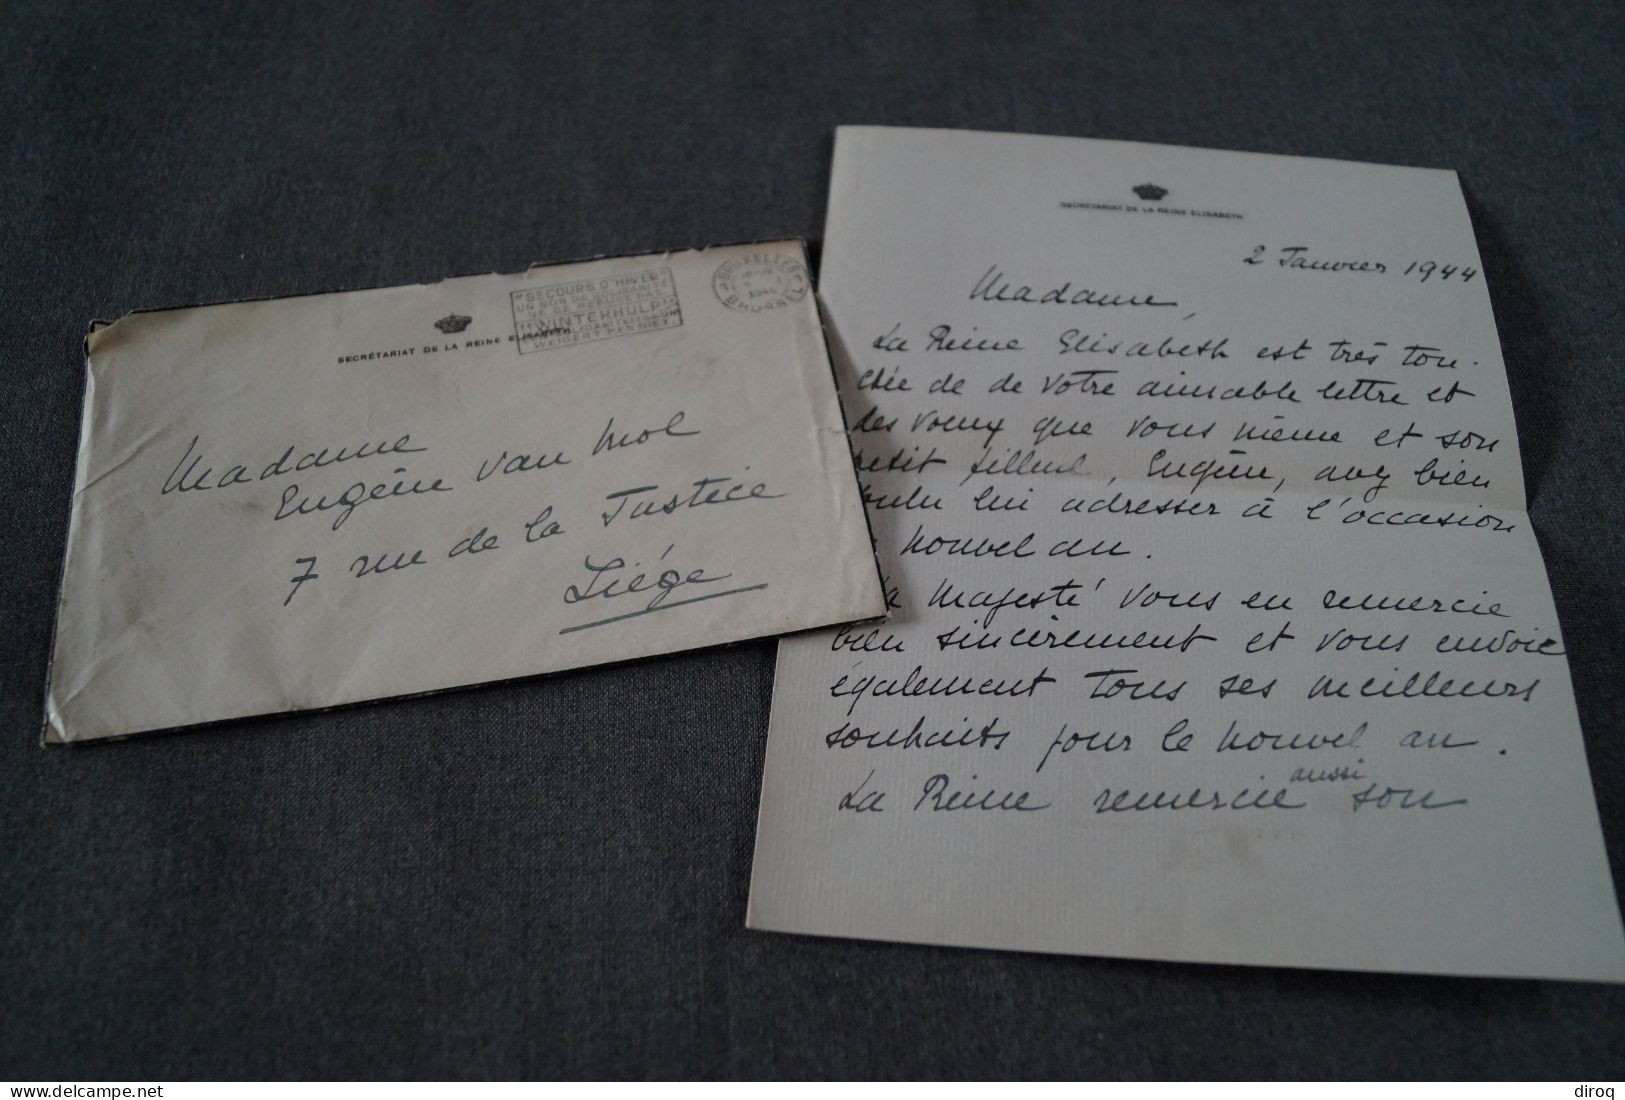 SECRÉTARIAT DE LA REINE ELISABETH
"SECOURS D'HIVER"
UN BON DE SOLIDARITÉ
NE SE REFUSE PAS
"WINTERHULP"
WEIGERT MEN NIET.
BRUXELLES
1944
BRUSSEL
Madame
Eugène van Mol
7 rue de la Justice
Liége
SECRÉTARIAT DE LA REINE ELISABETH
2 Janvier 1944
Madame,
La Reine Elisabeth est très tou-
chée de de votre aimable lettre et
des voeux que vous même et son
petit filleul, Eugène, avez bien
voulu lui adresser à l'occasion
nouvel an.
Sa Majesté vous en remercie
bien sincèrement et vous envoie
également tous ses meilleurs
souhaits pour le nouvel an.
La Reine remercie aussi son
diroq